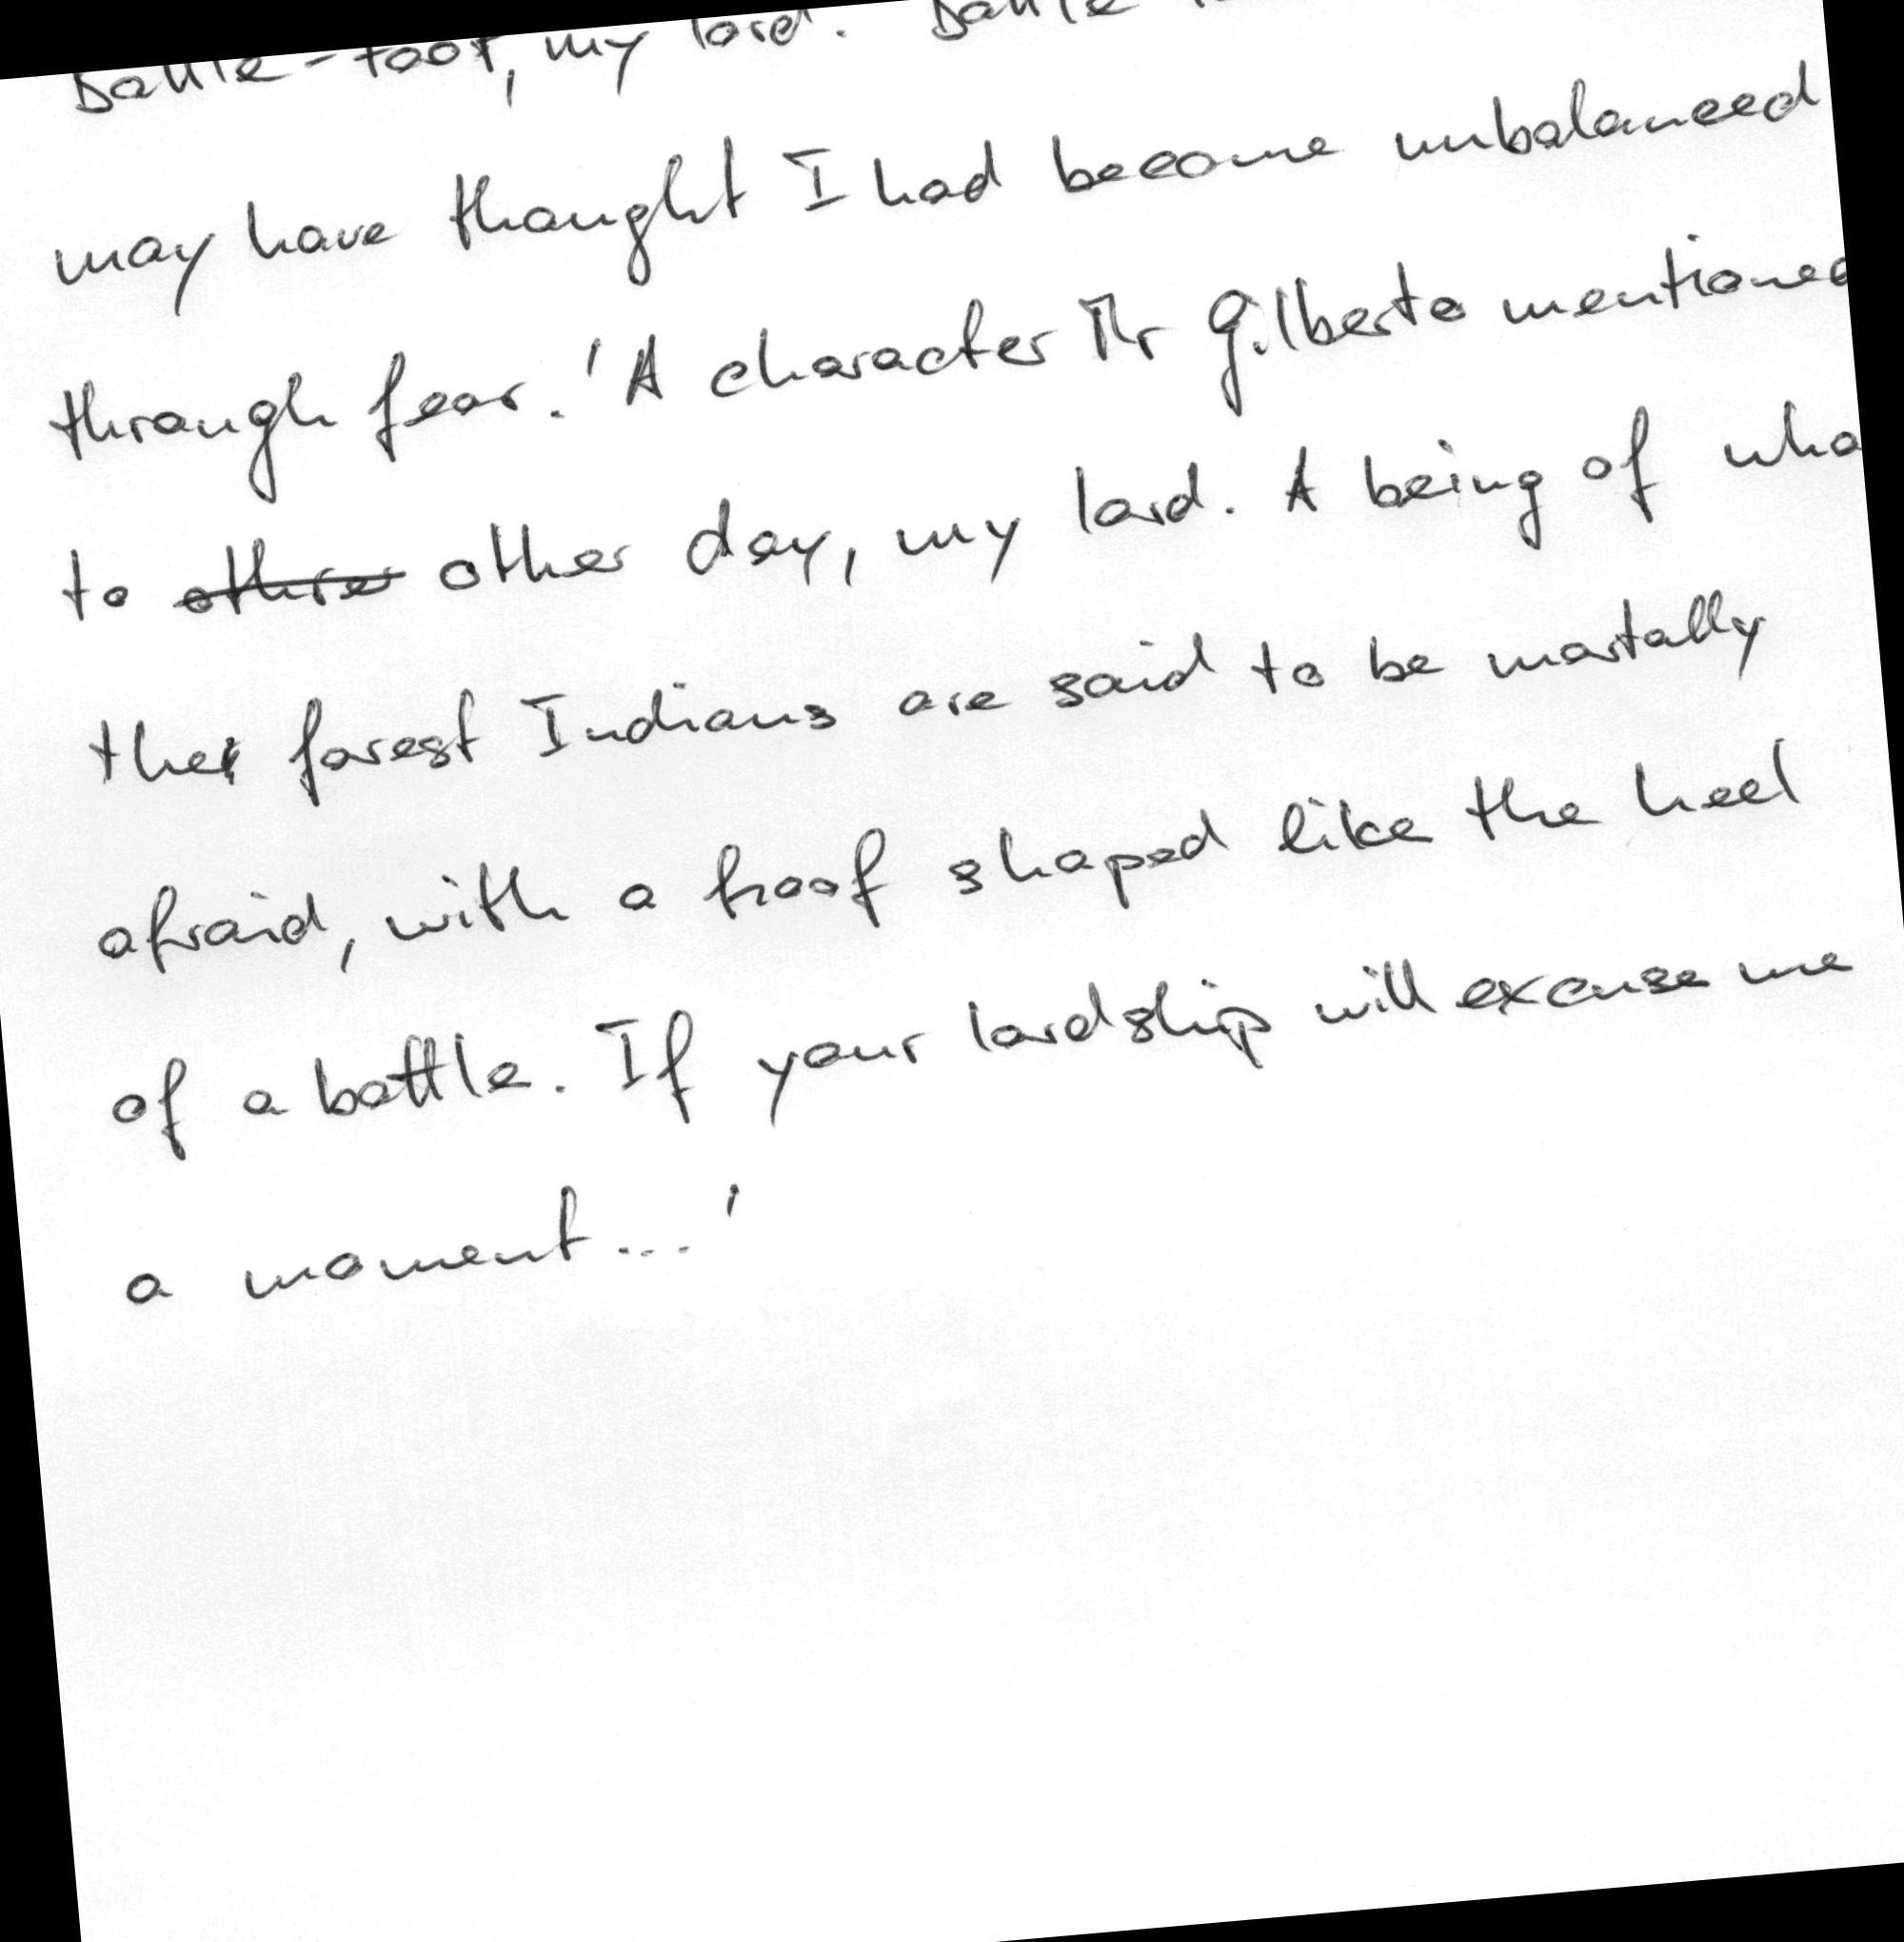 Bottle-foot, my lord. Bottle
may have thought I had become unbalanced
through fear. 'A character Mr Gilberto mentioned
to other day, my lord. A being of who
the forest Indians are said to be mortally
afraid, with a hoof shaped like the heel
of a bottle. If your lordship will excuse me
a moment...'